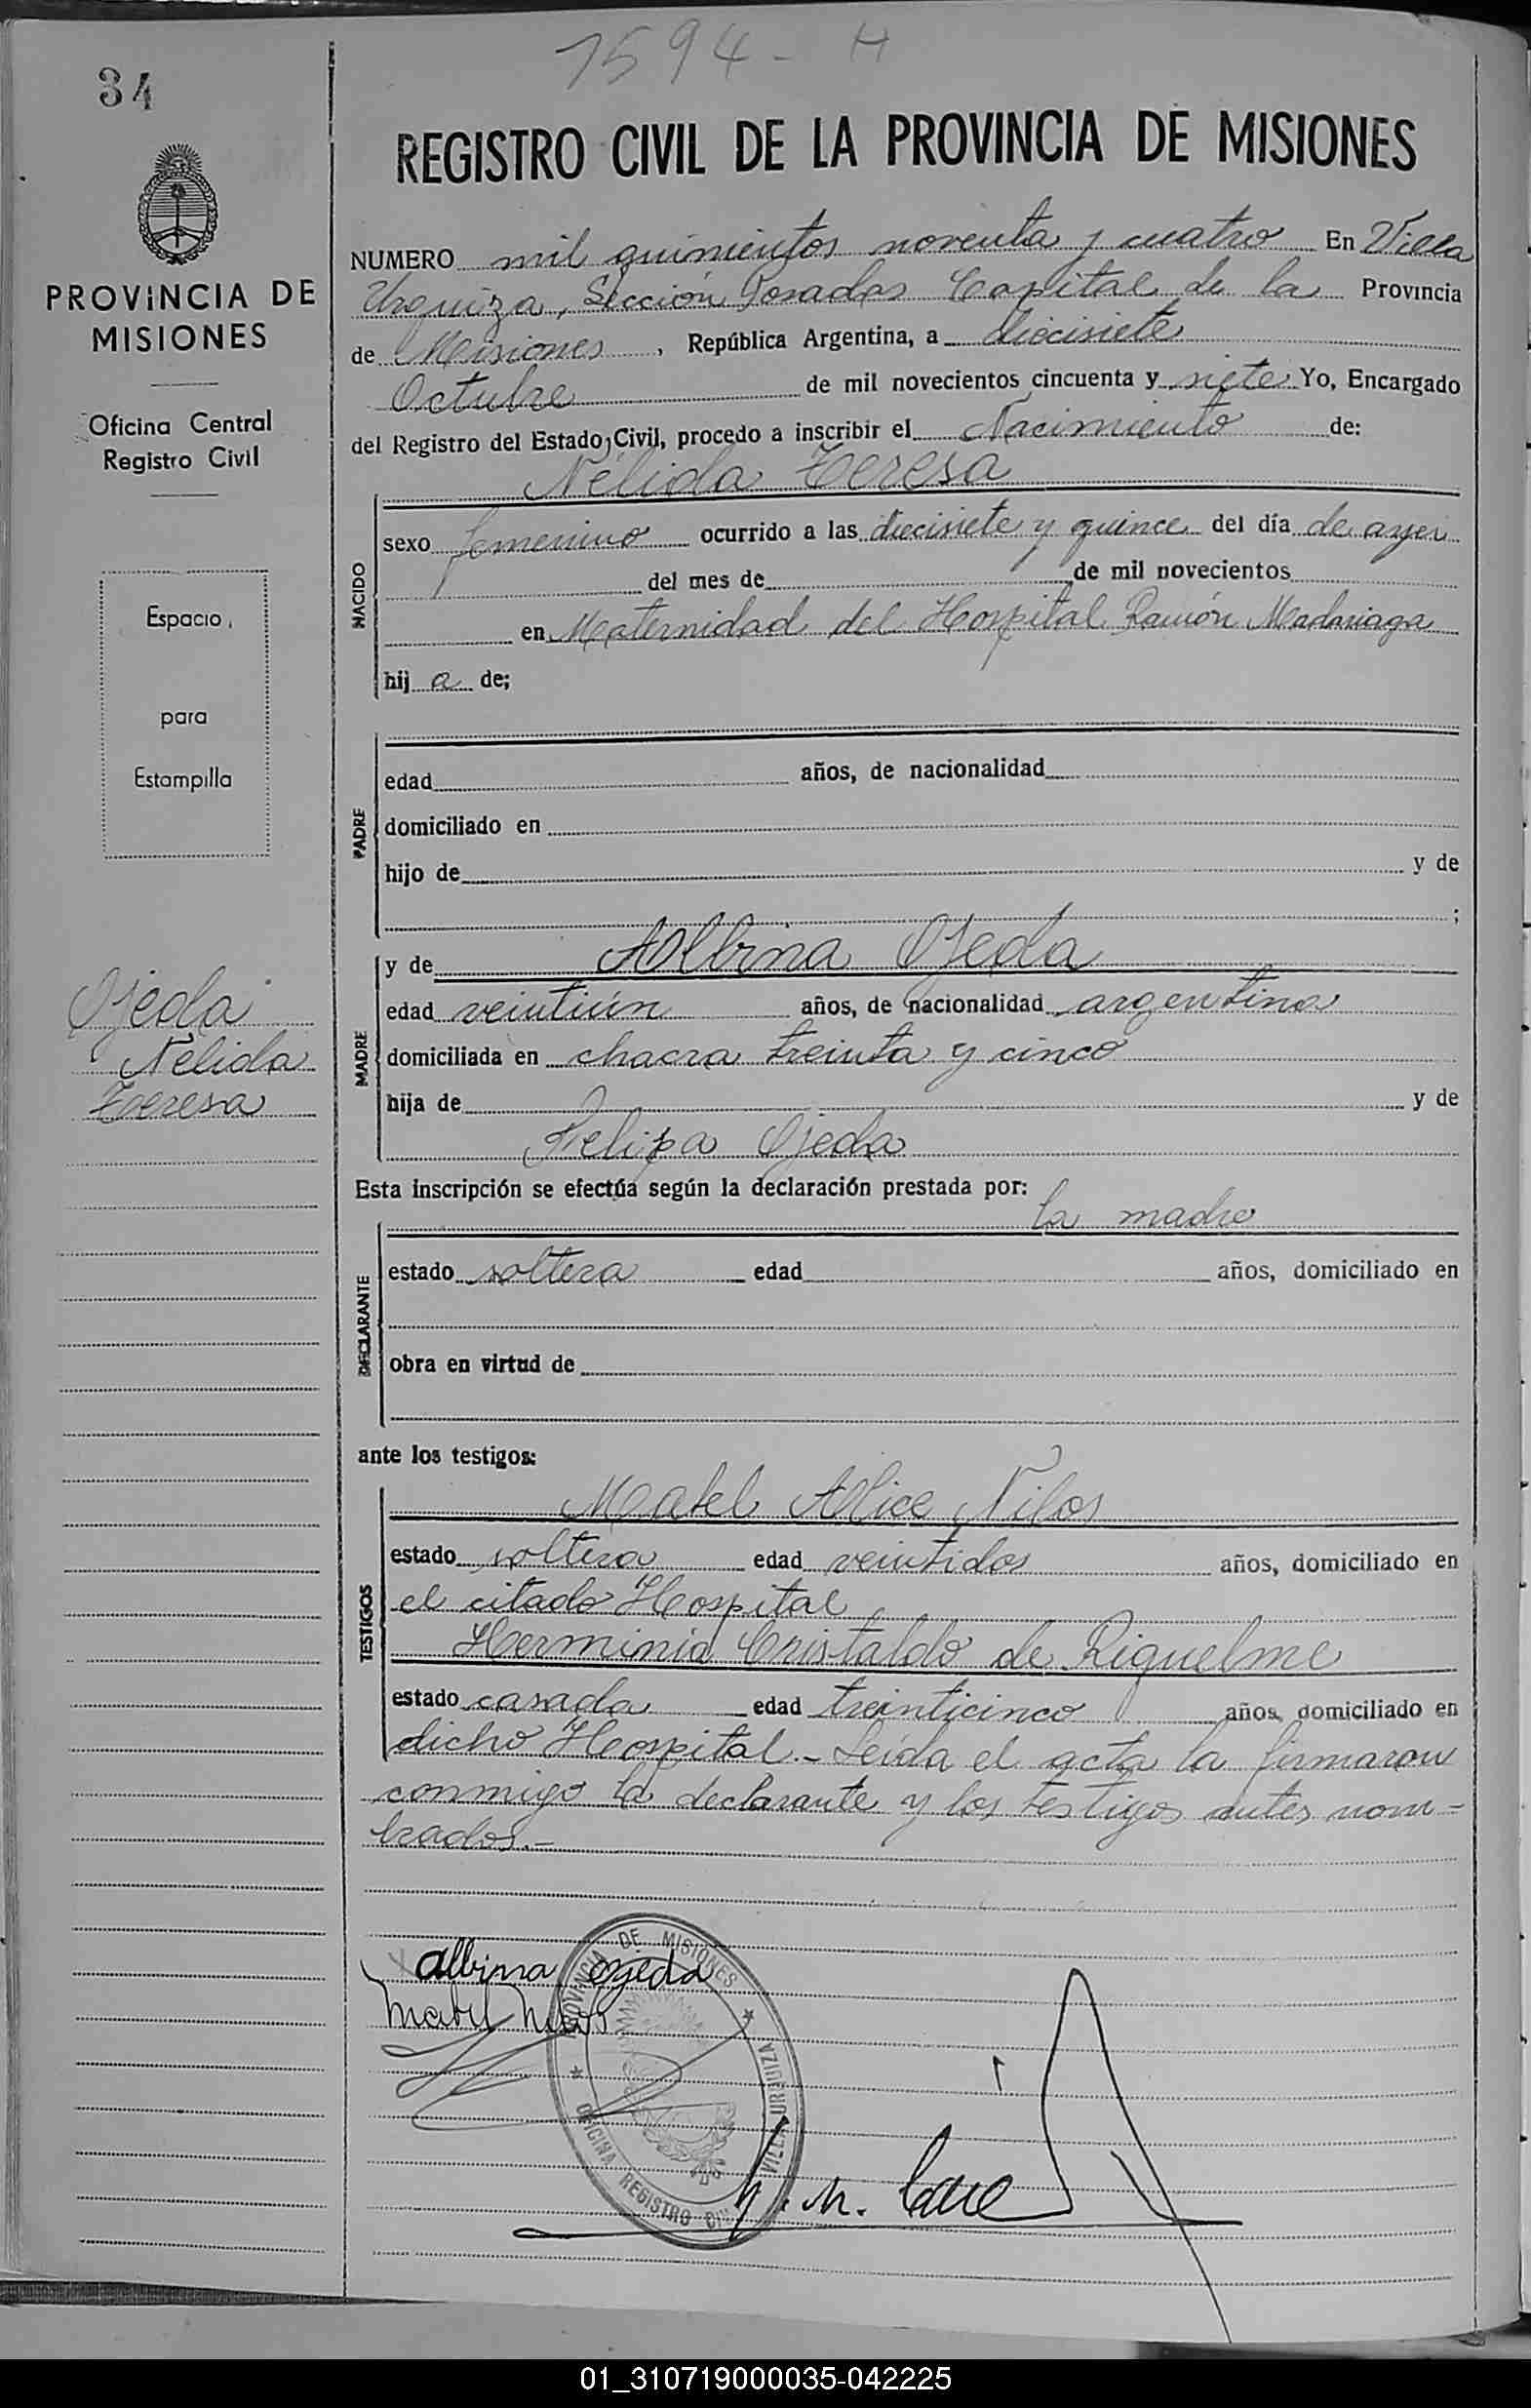 1594 - H
34
REGISTRO CIVIL DE LA PROVINCIA DE MISIONES
PROVINCIA DE
MISIONES
Oficina Central
Registro Civil
Espacio
para
Estampilla
Ojeda
Nélida
Teresa
NUMERO mil quinientos noventa y cuatro En Villa
Urquiza, Sección Posadas Capital de la Provincia
de Misiones, República Argentina, a diecisiete
Octubre de mil novecientos cincuenta y siete Yo, Encargado
del Registro del Estado Civil, procedo a inscribir el Nacimiento de:
Nélida Teresa
NACIDO
sexo femenino ocurrido a las diecisiete y quince del día de ayer
del mes de de mil novecientos
en Maternidad del Hospital Ramón Madariaga
hij a de;
PADRE
edad años, de nacionalidad
domiciliado en
hijo de y de
;
MADRE
y de Albina Ojeda
edad veintiún años, de nacionalidad argentina
domiciliada en chacra treinta y cinco
hija de y de
Felipa Ojeda
Esta inscripción se efectúa según la declaración prestada por:
la madre
DECLARANTE
estado soltera edad años, domiciliado en
obra en virtud de
ante los testigos:
TESTIGOS
Mabel Alice Nilos
estado soltera edad veintidos años, domiciliado en
el citado Hospital
Herminia Cristaldo de Riquelme
estado casada edad treinticinco años, domiciliado en
dicho Hospital.- Leída el acta la firmaron
conmigo la declarante y los testigos antes nom-
brados.-
albina ojeda
Mabel Nilos
PROVINCIA DE MISIONES
OFICINA REGISTRO CIVIL
VILLA URQUIZA
01_310719000035-042225